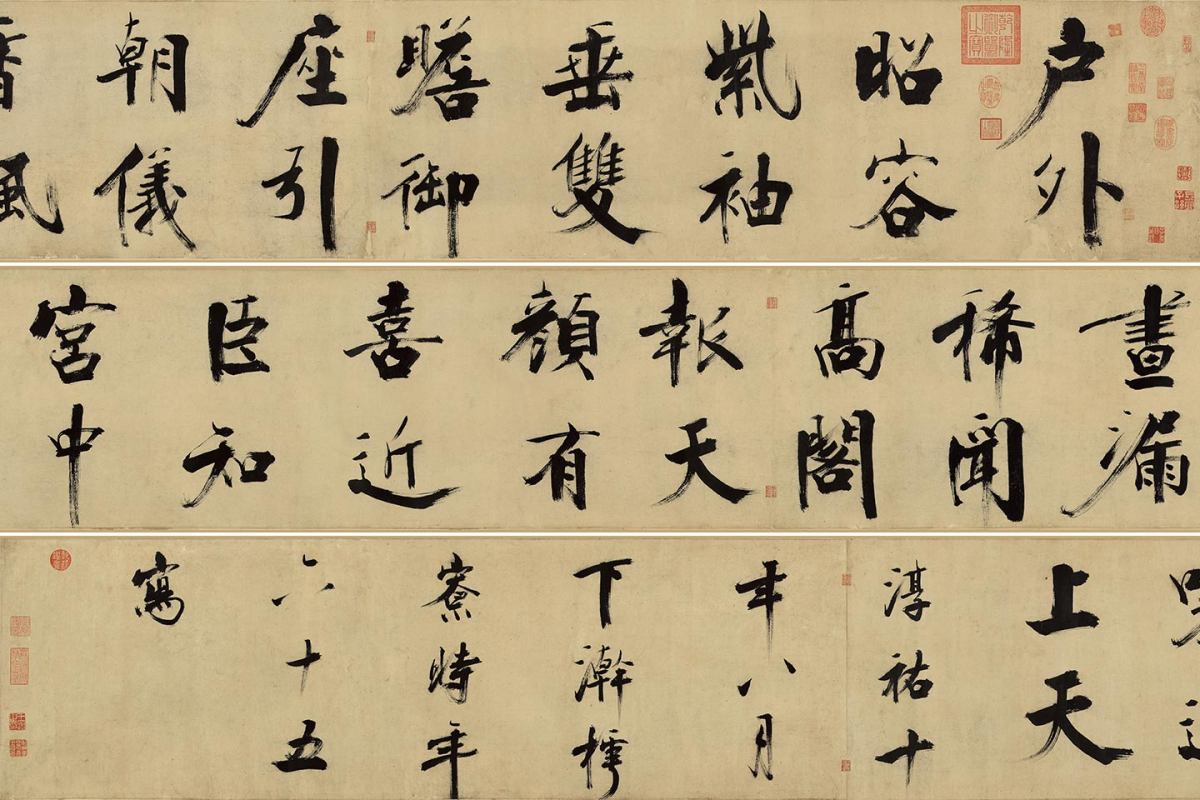 户外
昭容
紫袖
垂雙
瞻御
座引
朝儀
香
晝漏
稀聞
高閣
報天
顏有
喜近
臣知
宮中
上天
淳祐十
年八月
下澣樗
寮時年
六十五
寫